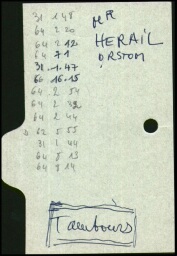 31 1 48
64 2 20
64 2 12
64 71
31 .1.47
66 16.15
64 2 54
64 2 42
64 2 44
62 5 55
31 2 44
64 8 13
64 9 14
Mr
HERAIL
ORSTOM
Tambours